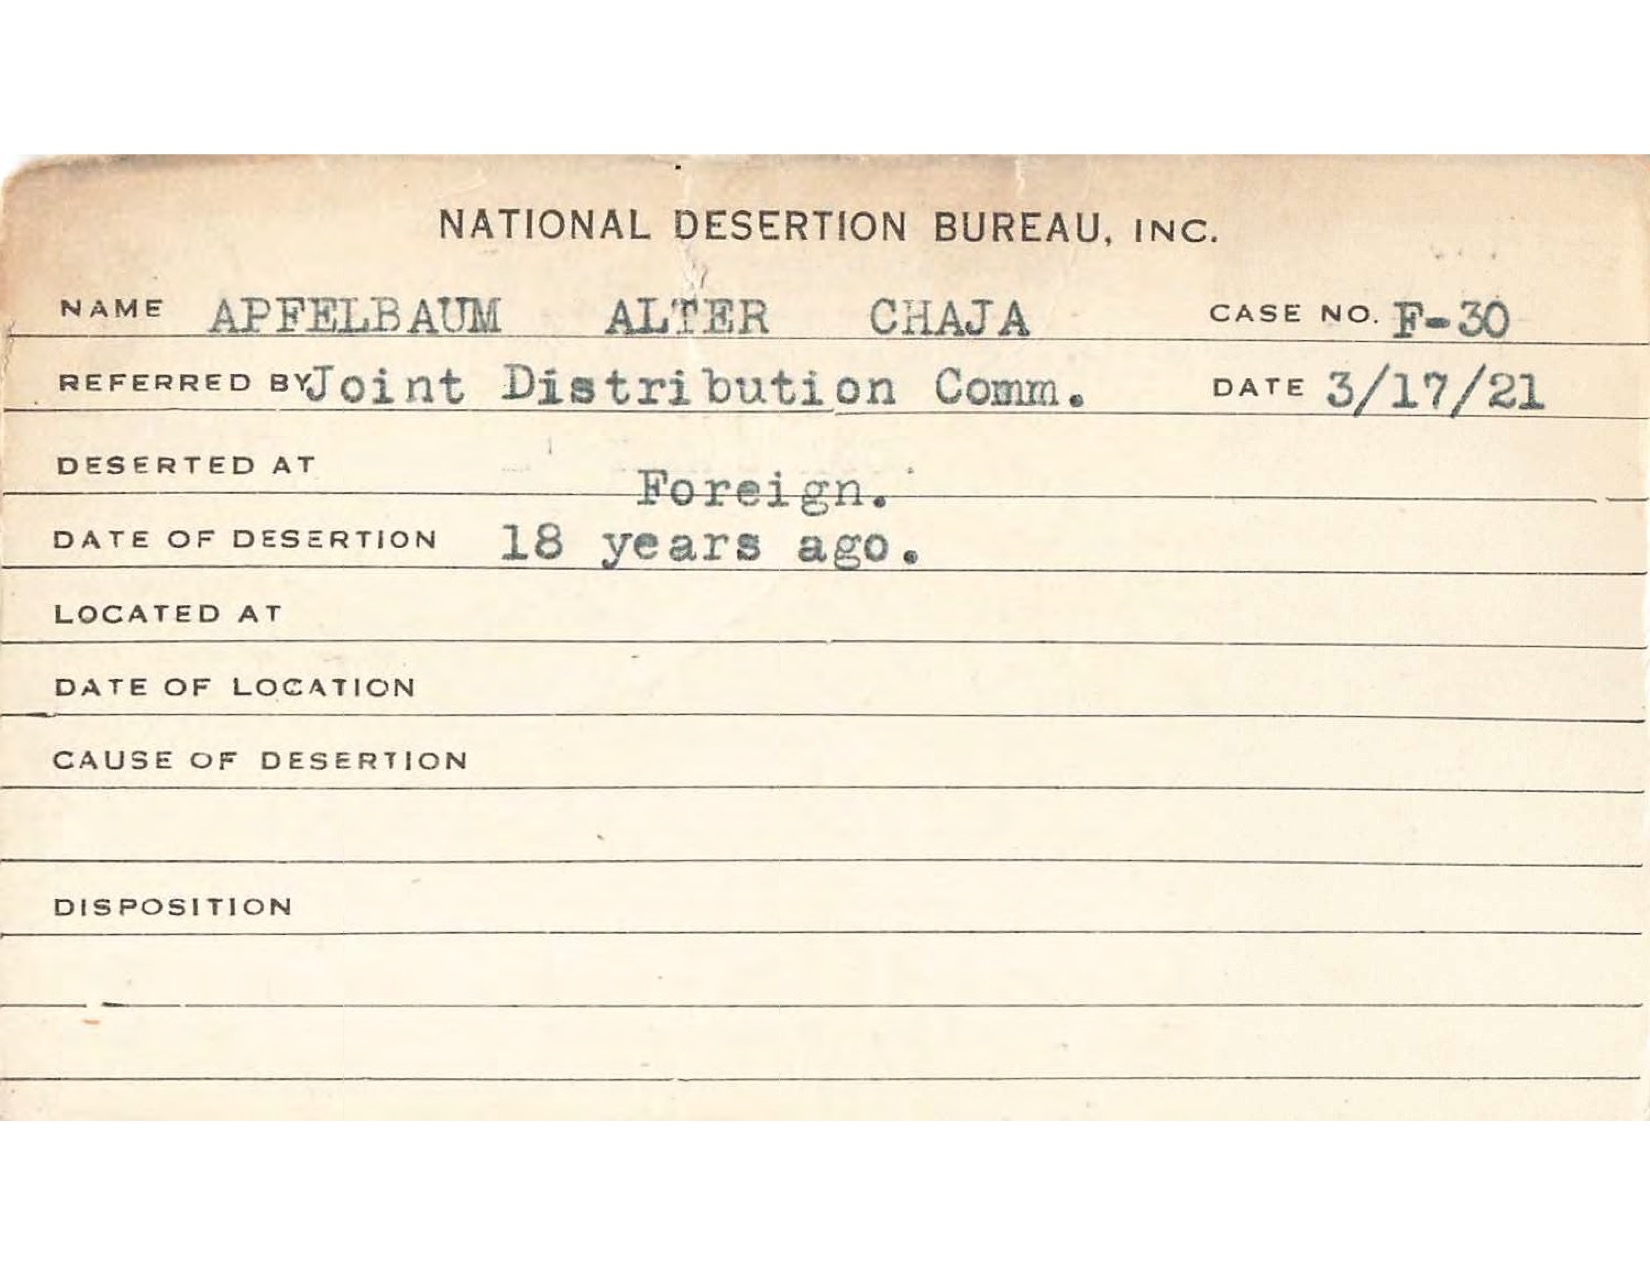 NATIONAL DESERTION BUREAU, INC.
NAME APFELBAUM ALTER CHAJA CASE NO. F-30
REFERRED BY Joint Distribution Comm. DATE 3/17/21
DESERTED AT Foreign.
DATE OF DESERTION 18 years ago.
LOCATED AT
DATE OF LOCATION
CAUSE OF DESERTION
DISPOSITION